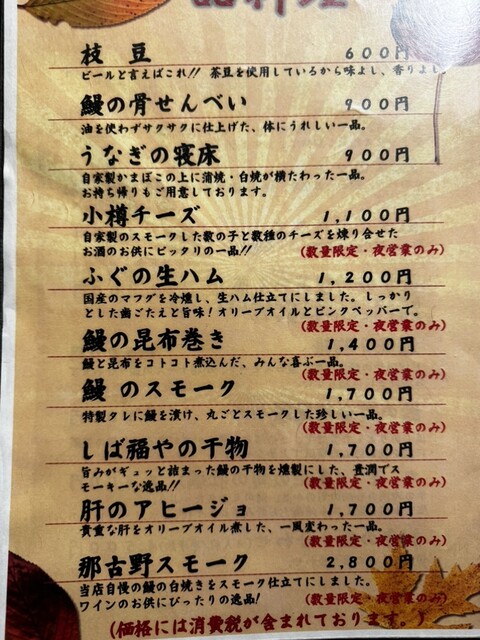 一品料理
枝 豆 600円
ビールと言えばこれ!! 茶豆を使用しているから味よし、香りよし
鰻の骨せんべい 900円
油を使わずサクサクに仕上げた、体にうれしい一品。
うなぎの寝床 900円
自家製かまぼこの上に蒲焼・白焼が横たわった一品。
お持ち帰りもご用意しております。
小樽チーズ 1,100円
自家製のスモークした数の子と数種のチーズを煉り合せた
お酒のお供にピッタリの一品!! (数量限定・夜営業のみ)
ふぐの生ハム 1,200円
国産のマフグを冷燻し、生ハム仕立てにしました。しっかり
とした歯ごたえと旨味!オリーブオイルとピンクペッパーで。
(数量限定・夜営業のみ)
鰻の昆布巻き 1,400円
鰻と昆布をコトコト煮込んだ、みんな喜ぶ一品。
(数量限定・夜営業のみ)
鰻 のスモーク 1,700円
特製タレに鰻を漬け、丸ごとスモークした珍しい一品。
(数量限定・夜営業のみ)
しば福やの干物 1,700円
旨みがギュッと詰まった鰻の干物を燻製にした、豊潤でス
モーキーな逸品!! (数量限定・夜営業のみ)
肝のアヒージョ 1,700円
貴重な肝をオリーブオイル煮した、一風変わった一品。
(数量限定・夜営業のみ)
那古野スモーク 2,800円
当店自慢の鰻の白焼きをスモーク仕立てにしました。
ワインのお供にぴったりの逸品! (数量限定・夜営業のみ)
(価格には消費税が含まれております。)